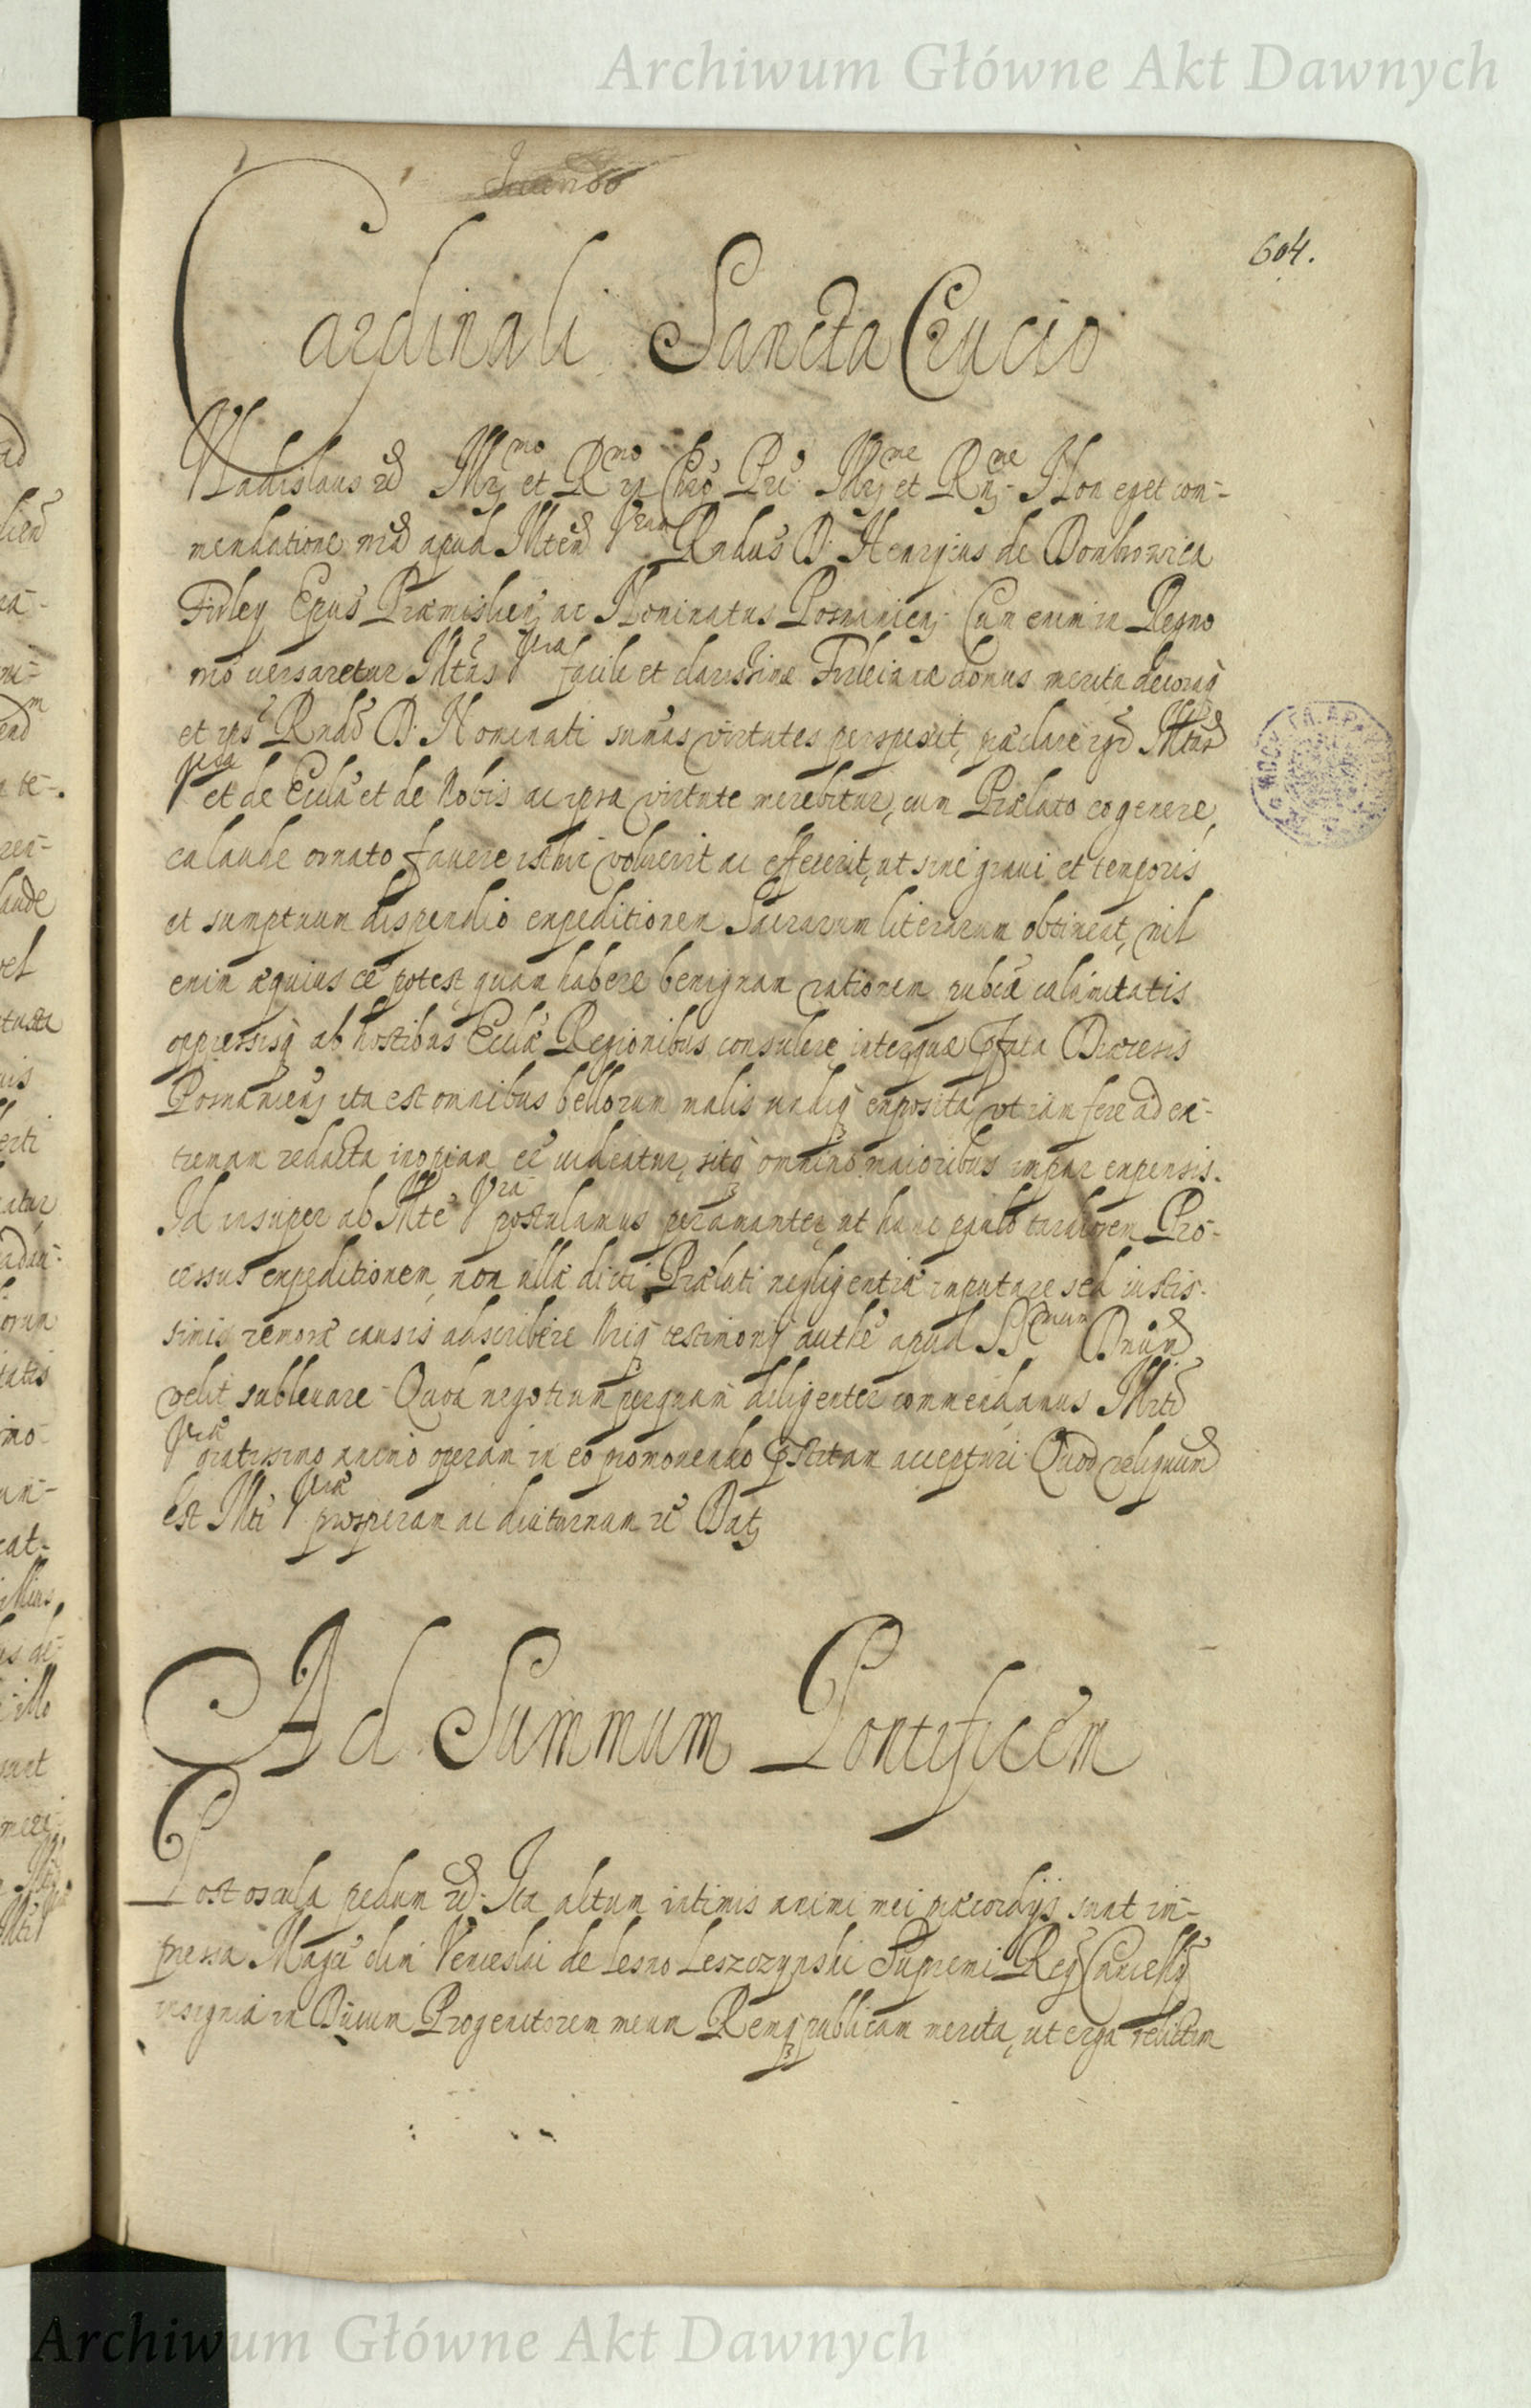 Archiwum Główne Akt Dawnych
604.
Cardinali Sancta Crucis
Vladislaus rd Illrj mo et Rrj mo Chro Pri Illrj me et Rnj me Non eget com-
mendatione nrã apud Illtem Vram Rndus D. Henrjcus de Dombrowica
Firley Epus Præmislien ac Nominatus Posnanien Cum enim in Regno
nro versaretur Illtas Vra facile et clarissimæ Firleianæ domus merita decoraq
et ips Rndi D. Nominati sumas virtutes perspexit, præclare
Vra et de Eccla et de Nobis ac ipsa virtute merebitur, cum Prælato eo genere,
ea laude ornato favere isthic voluerit ac effecerit, ut sine gravi et temporis
et sumptuum dispendio expeditionem Sacrarum literarum obtineat, nil
enim æquius cê potest, quam habere benignam rationem pubcæ calamitatis
oppressisq ab hostibus Ecclæ Regionibus consulere, inter quæ Diœcesis
Posnanien ita est omnibus bellorum malis undiq exposita, ut iam fere ad ex-
tremam redacta inopiam cê videatur, sitq omnino maioribus impar expensis.
Id insuper ab Illte Vra postulamus peramanter, ut hanc paulo tardiorem Pro-
cessus expeditionem, non ullæ dicti Prælati negligentiæ imputare sed iustis-
simis remoræ causis adscribere Nriq testimonij authe apud SSmum Dnum
velit sublevare. Quod negotium perquam diligenter commendamus Illti
Vræ gratissimo animo operam in eo promovendo accepturi Quod reliquum
est Illti Vræ prosperam ac diuturnam rê Datj
Ad Summum Pontificem
Post oscula pedum rd. Ita altum intimis animi mei præcordijs sunt im-
pressa Magci olim Venceslai de Lesno Leszczynski Supremi Regj Cancellj
insignia in Divum Progenitorem meum Remq publicam merita, ut erga relictam
Archiwum Główne Akt Dawnych